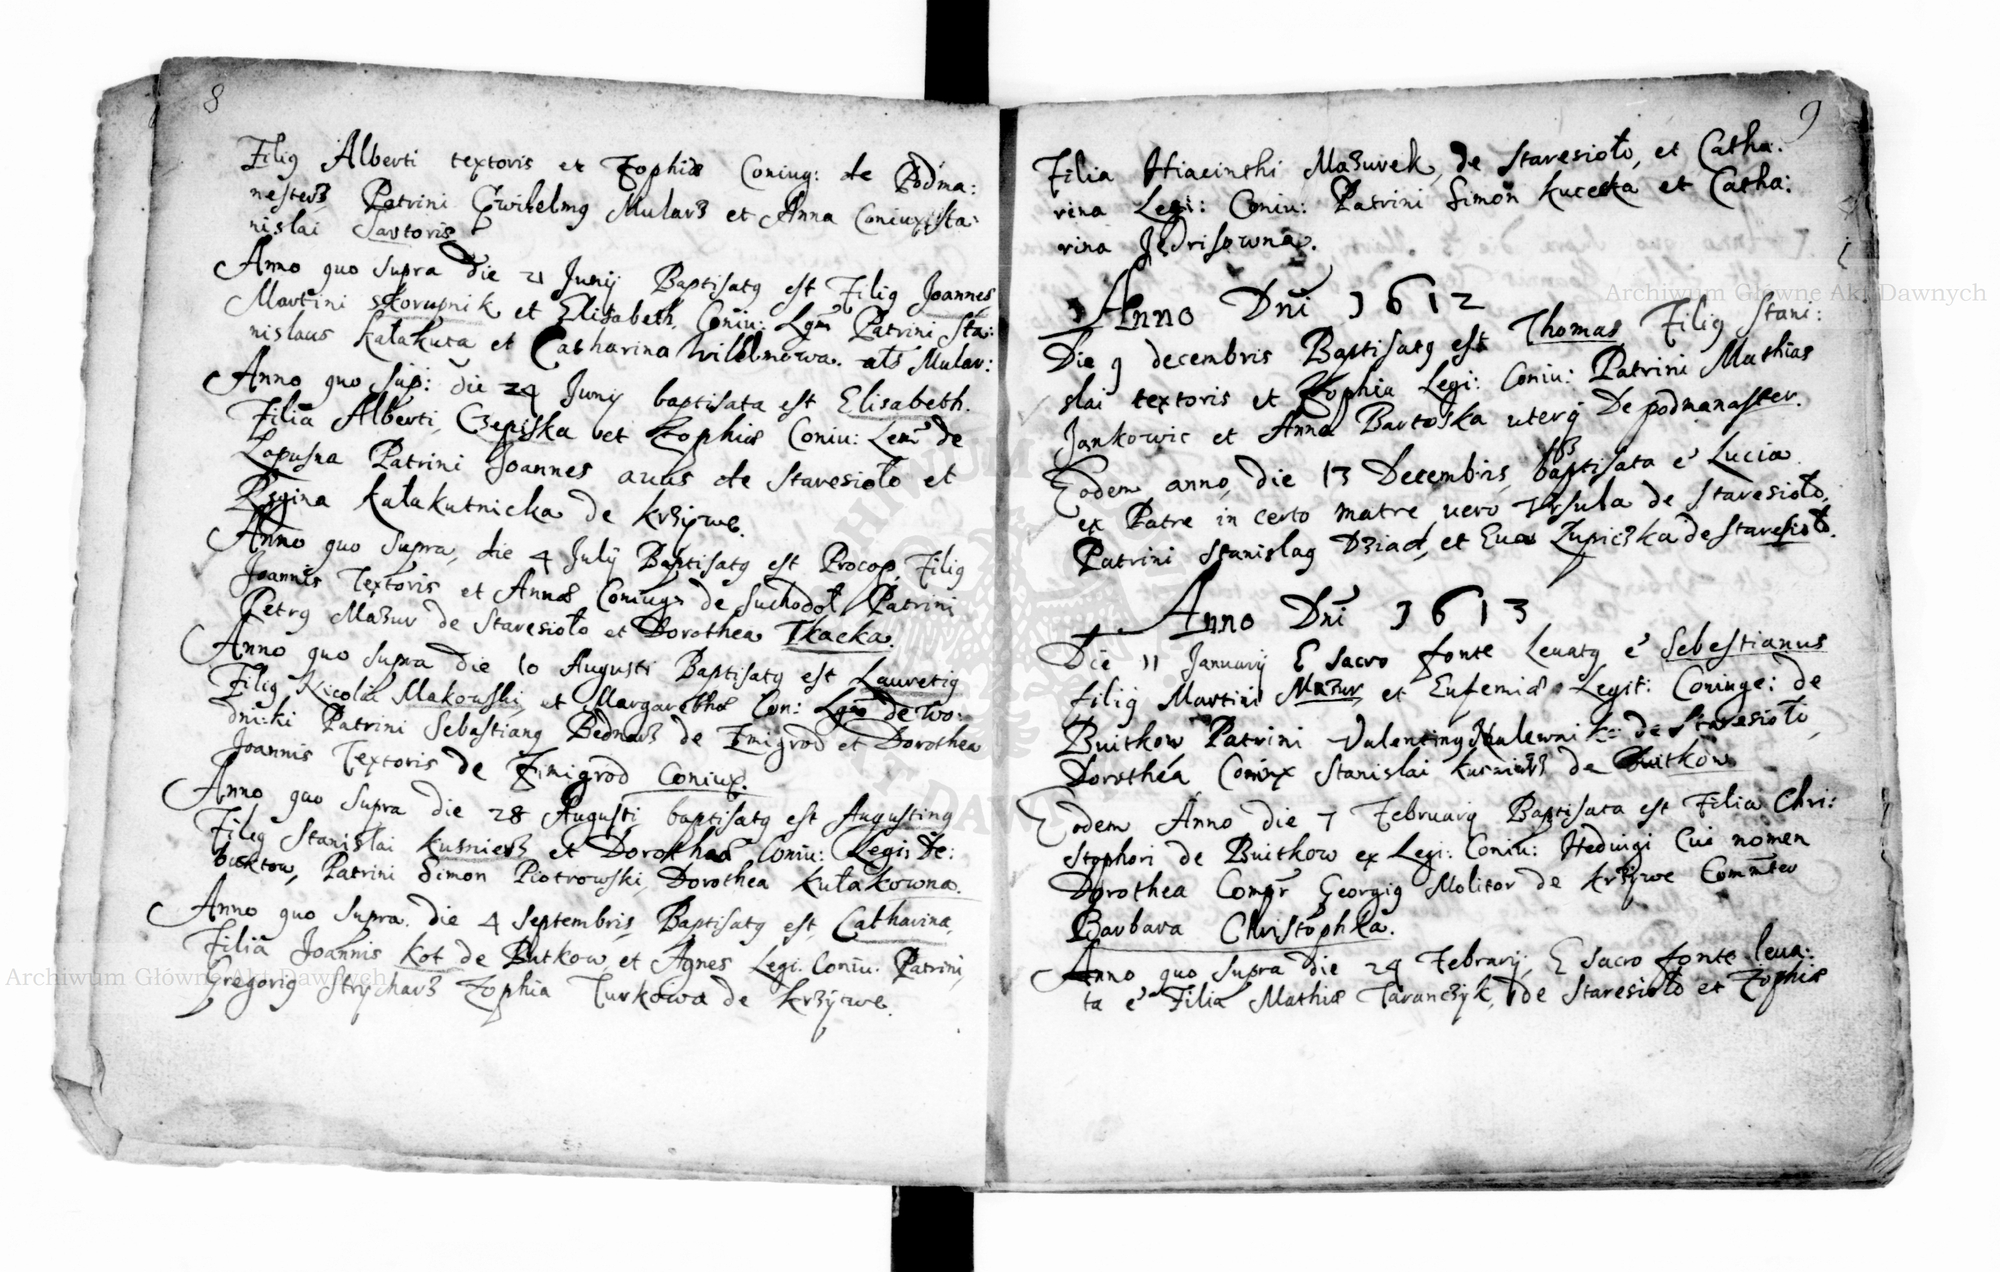 8
Filig Alberti textoris et Zophiæ Coniug: de Podma:
nesterz, Patrini Gwilelmg Mularz et Anna Coniux Sta:
nislai Sartoris
Anno quo supra die 21 Junij Baptisatg est Filig Joannes
Martini Skorupnik et Elisabeth, Coniu: Lgm Patrini Sta:
nislaus Kałakuta et Catharina Wilelmowa als Mular:
Anno quo sup: die 24 Junij baptisata est Elisabeth.
Filia Alberti, et Zophiæ Coniu: de
Lopusna Patrini Joannes de Staresioło et
Regina Kałakutnicka de Krzywe.
Anno quo supra, die 4 Julij Baptisatg est Procop, Filig
Joannis Textoris et Annæ Coniugu de Suchodoł, Patrini
Petrg Mazur de Staresioło et Dorothea Tkacka.
Anno quo supra die 10 Augusti Baptisatg est Lauretig
Filig Nicolai Makowski, et Margarethæ Con: de Wo:
dniki Patrini Sebastiang Bednarz de Zmigrod et Dorothea
Joannis Textoris de Zmigrod Coniux.
Anno quo supra die 28 Augusti, baptisatg est Augusting
Filig Stanislai Kusnierz et Dorotheæ Coniu: Legi: De:
Patrini Simon Piotrowski, Dorothea Kułakowna.
Anno quo supra. die 4 Septembris, Baptisatg est Catharina,
Filia Joannis Kot de Butkow et Agnes Legi. Coniu: Patrini,
Gregorig Strycharz Zophia Turkowa de Krzywe.
9
Filia Hiacinthi Mazurek, de Staresioło, et Catha:
rina Legi: Coniu: Patrini Simon et Catha:
rina Jędrisowna.
Anno Dni 1612
Die 9 decembris Baptisatg est Thomas Filig Stani:
slai textoris et Zophia Legi: Coniu: Patrini Mathias
Jankowic et Anna Bartoska uterq De podmanaster.
Eodem anno, die 13 Decembris, baptisata e Lucia
ex Patre in certo matre vero Ursula de Staresioło,
Patrini Stanislag Dziad, et Eua Zupiczka de Staresioło.
Anno Dni 1613
Die 11 Januarij E Sacro fonte Leuatg e Sebestianus
filig Martini Mazur, et Eufemiæ Legit: Coniuge: de
Buitkow Patrini Valenting de Staresioło,
Dorothea Coniux Stanislai Kusnierz de Buitkow
Eodem Anno die 7 Februarij Baptisata est Filia Chri:
stophori de Buitkow ex Legi: Coniu: Heduigi Cui nomen
Dorothea Compr Georgig Molitor de Krzywe Commter
Barbara Christophła.
Anno quo supra die 24 Februarij, E Sacro fonte leua:
ta e Filia Mathiæ Taranczyk, de Staresioło et Zophiæ
Archiwum Główne Akt Dawnych
Archiwum Główne Akt Dawnych